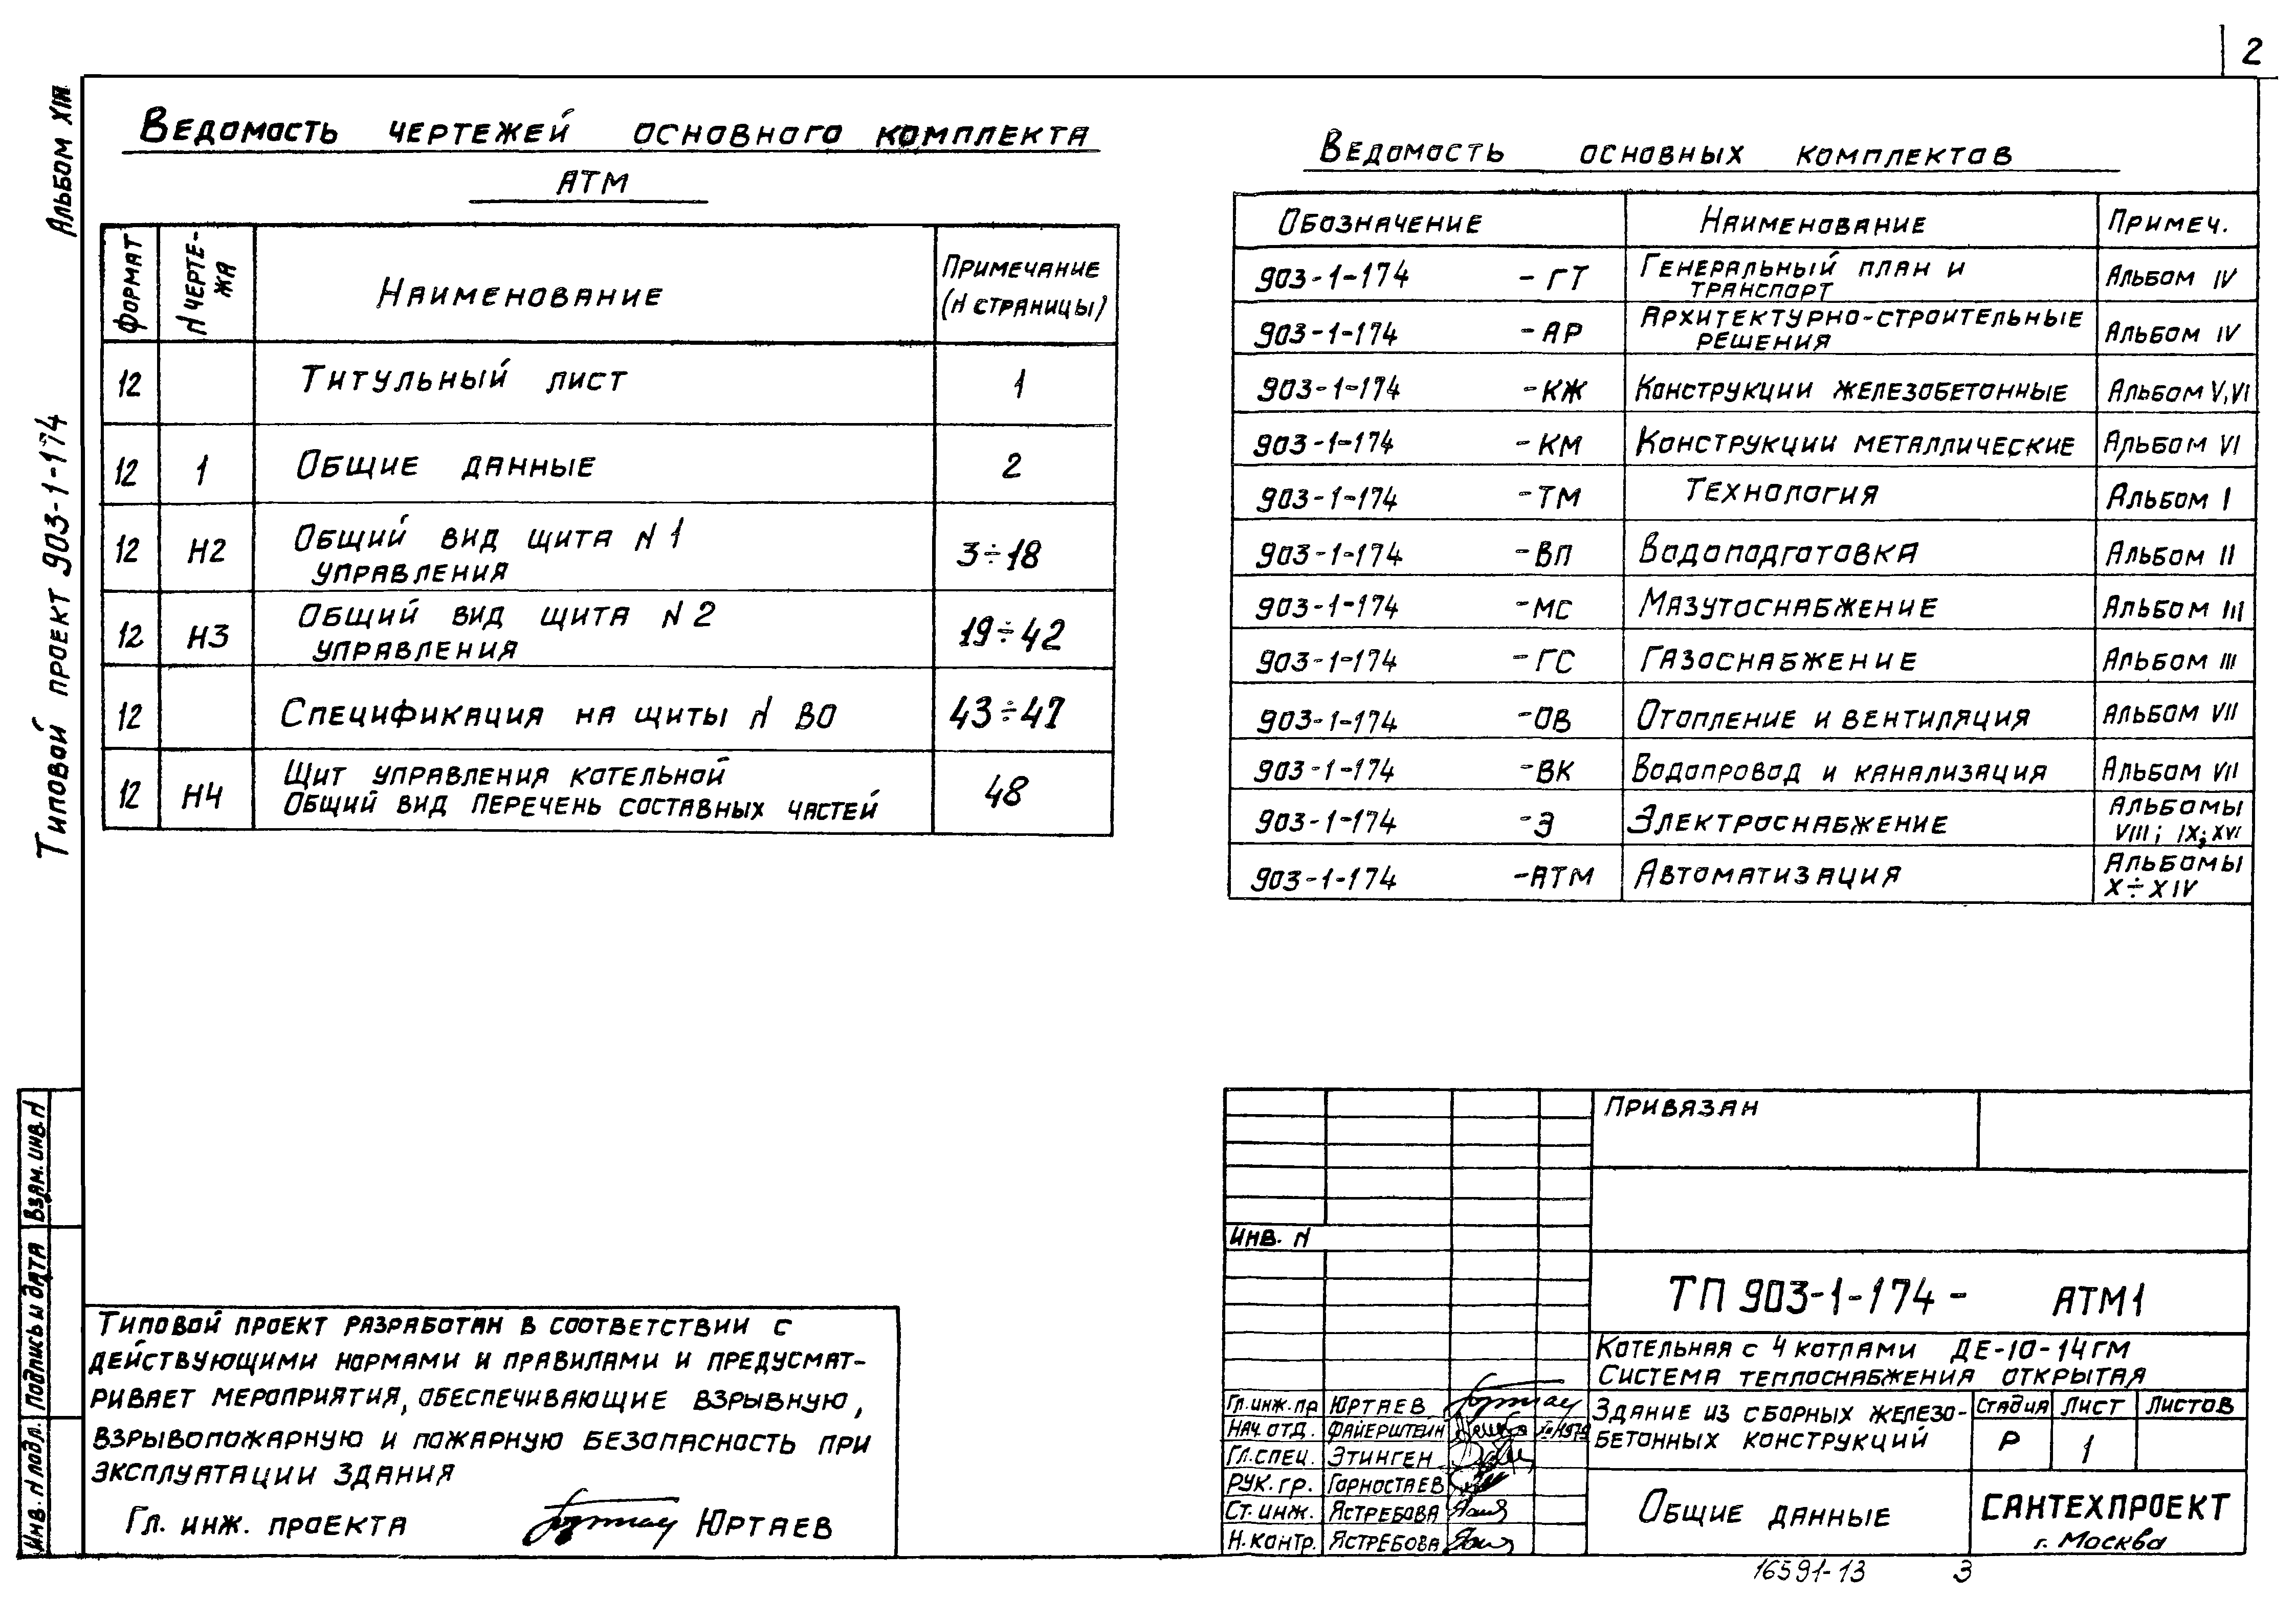 2
Альбом XIII
Типовой проект 903-1-174
Ведомость чертежей основного комплекта
АТМ
Формат
N чертежа
Наименование
Примечание
(N страницы)
12 Титульный лист 1
12 1 Общие данные 2
12 Н2 Общий вид щита N 1 управления 3÷18
12 Н3 Общий вид щита N 2 управления 19÷42
12 Спецификация на щиты N ВО 43÷47
12 Н4 Щит управления котельной
Общий вид перечень составных частей 48
Ведомость основных комплектов
Обозначение Наименование Примеч.
903-1-174 -ГТ Генеральный план и транспорт Альбом IV
903-1-174 -АР Архитектурно-строительные решения Альбом IV
903-1-174 -КЖ Конструкции железобетонные Альбом V, VI
903-1-174 -КМ Конструкции металлические Альбом VI
903-1-174 -ТМ Технология Альбом I
903-1-174 -ВП Водоподготовка Альбом II
903-1-174 -МС Мазутоснабжение Альбом III
903-1-174 -ГС Газоснабжение Альбом III
903-1-174 -ОВ Отопление и вентиляция Альбом VII
903-1-174 -ВК Водопровод и канализация Альбом VII
903-1-174 -Э Электроснабжение Альбомы VIII; IX; XVI
903-1-174 -АТМ Автоматизация Альбомы X÷XIV
Взам. инв. N
Подпись и дата
Инв. N подл.
Типовой проект разработан в соответствии с
действующими нормами и правилами и предусмат-
ривает мероприятия, обеспечивающие взрывную,
взрывопожарную и пожарную безопасность при
эксплуатации здания
Гл. инж. проекта Юртаев
Привязан
Инв. N
ТП 903-1-174 - АТМ1
Котельная с 4 котлами ДЕ-10-14ГМ
Система теплоснабжения открытая
Гл. инж. пр Юртаев
Нач. отд. Файерштейн
Гл. спец. Этинген
Рук. гр. Горностаев
Ст. инж. Ястребова
Н. контр. Ястребова
Здание из сборных железо-
бетонных конструкций
Стадия Лист Листов
Р 1
Общие данные
САНТЕХПРОЕКТ
г. Москва
16591-13 3